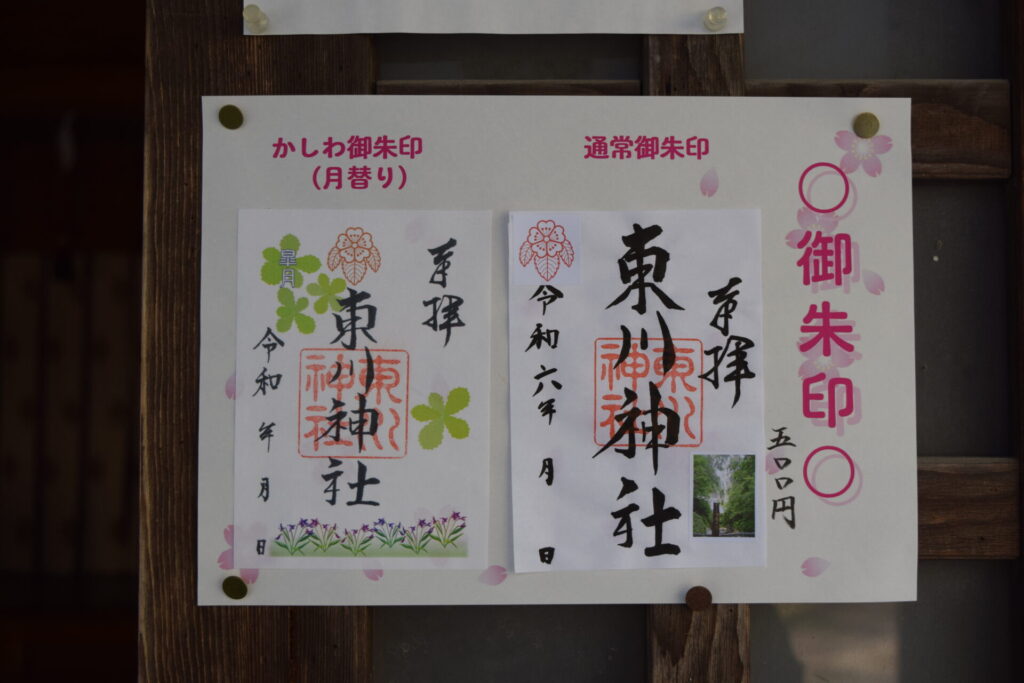 ○御朱印○
五〇〇円
通常御朱印
奉拝
東川神社
東川
神社
令和六年 月 日
かしわ御朱印
(月替り)
奉拝
東川神社
東川
神社
皐月
令和 年 月 日